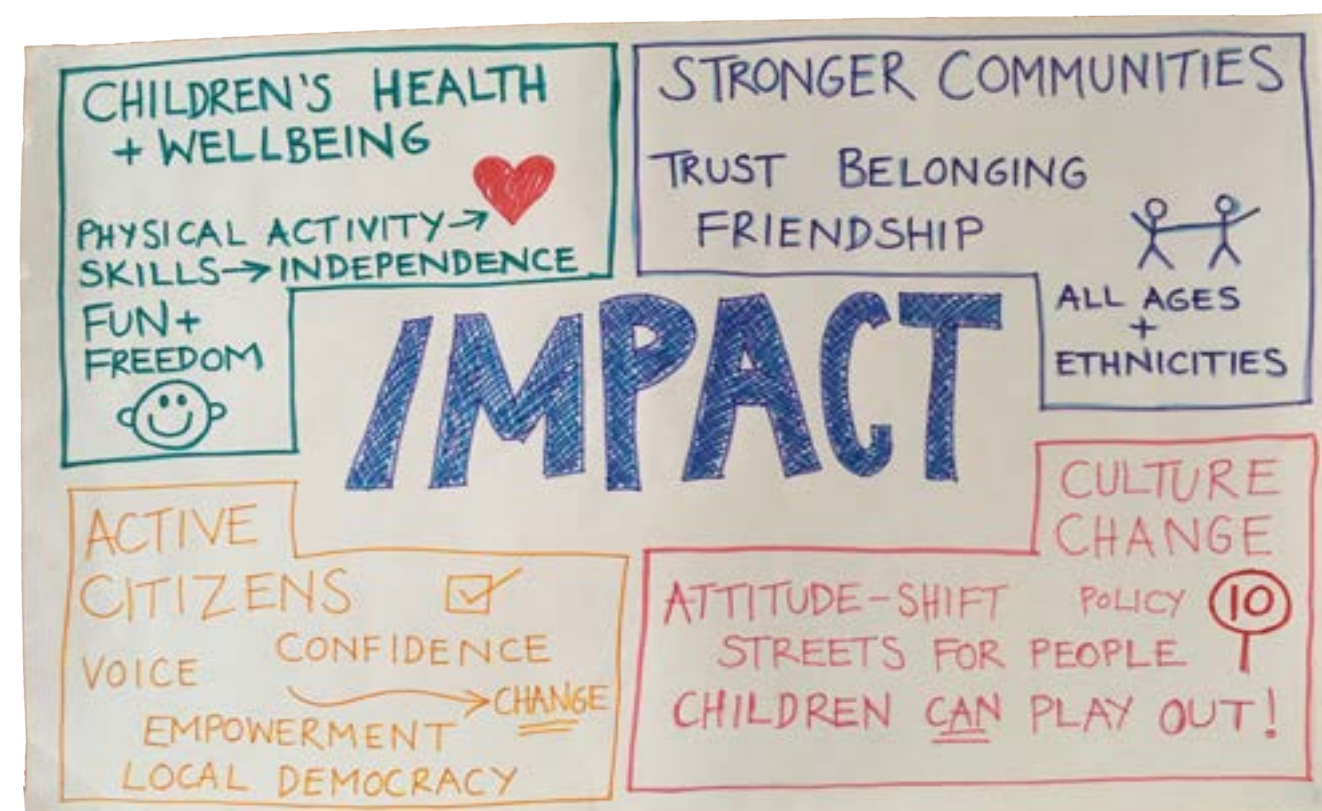 CHILDREN'S HEALTH
+ WELLBEING
PHYSICAL ACTIVITY →
SKILLS → INDEPENDENCE
FUN +
FREEDOM
STRONGER COMMUNITIES
TRUST BELONGING
FRIENDSHIP
ALL AGES
+
ETHNICITIES
IMPACT
ACTIVE
CITIZENS
CONFIDENCE
VOICE
→ CHANGE
EMPOWERMENT
LOCAL DEMOCRACY
CULTURE
CHANGE
ATTITUDE-SHIFT POLICY 10
STREETS FOR PEOPLE
CHILDREN CAN PLAY OUT!